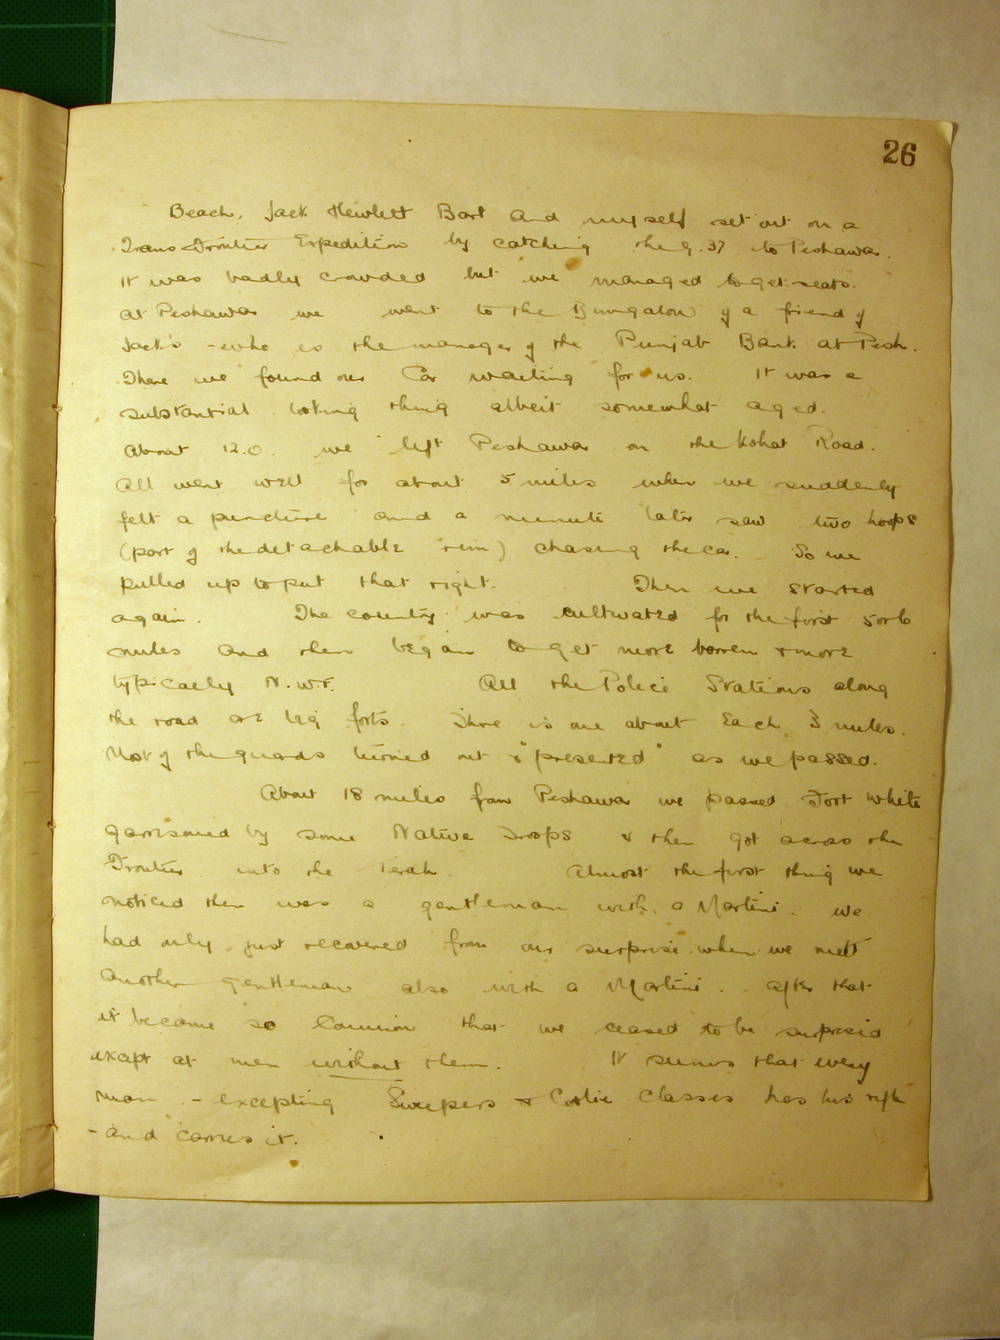 26
Beach, Jack Hewlett Bart and myself set out on a
Trans-Frontier Expedition by catching the 9.37 to Peshawar.
It was badly crowded but we managed to get seats.
At Peshawar we went to the Bungalow of a friend of
Jack's - who is the manager of the Punjab Bank at Pesh.
There we found our Car waiting for us. It was a
substantial looking thing albeit somewhat aged.
About 12.0. we left Peshawar on the Kohat Road.
All went well for about 5 miles when we suddenly
felt a puncture and a minute later saw two hoops
(part of the detachable rim) chasing the car. So we
pulled up to put that right. Then we started
again. The country was cultivated for the first 5 or 6
miles and then began to get more barren & more
typically N.W.F. All the Police Stations along
the road are big forts. There is one about each 3 miles.
Most of the guards turned out & "presented" as we passed.
About 18 miles from Peshawar we passed Fort White
garrisoned by some Native Troops & then got across the
Frontier into the Terah. Almost the first thing we
noticed then was a gentleman with a Martini. We
had only just recovered from our surprise when we met
another gentleman also with a Martini. After that
it became so Common that we ceased to be surprised
except at men without them. It seems that every
man - excepting Sweepers & Coolie Classes has his rifle
- and carries it.